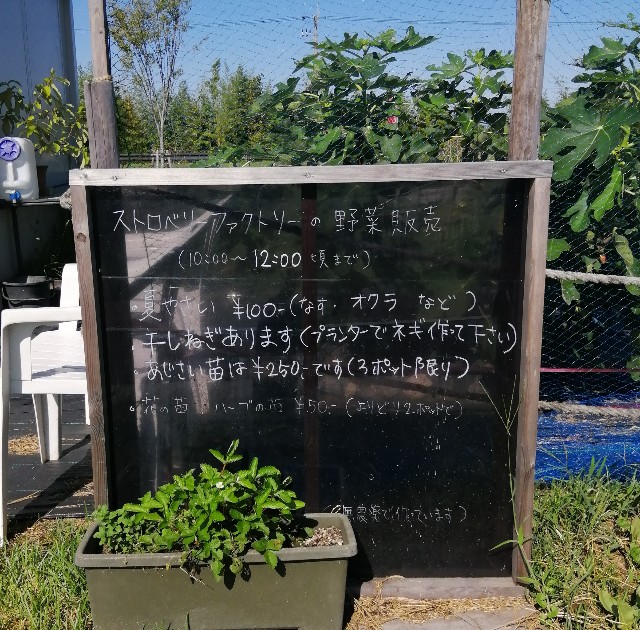 ストロベリーファクトリーの 野菜販売
(10:00～12:00 頃まで)
・夏やさい ¥100-(なす・オクラ など)
・干しねぎあります(プランターでネギ作って下さい)
・あじさい苗は¥250-です(3ポット限り)
・花の苗 ハーブの苗 ¥50-(よりどり2ポットで)
(無農薬で作っています)